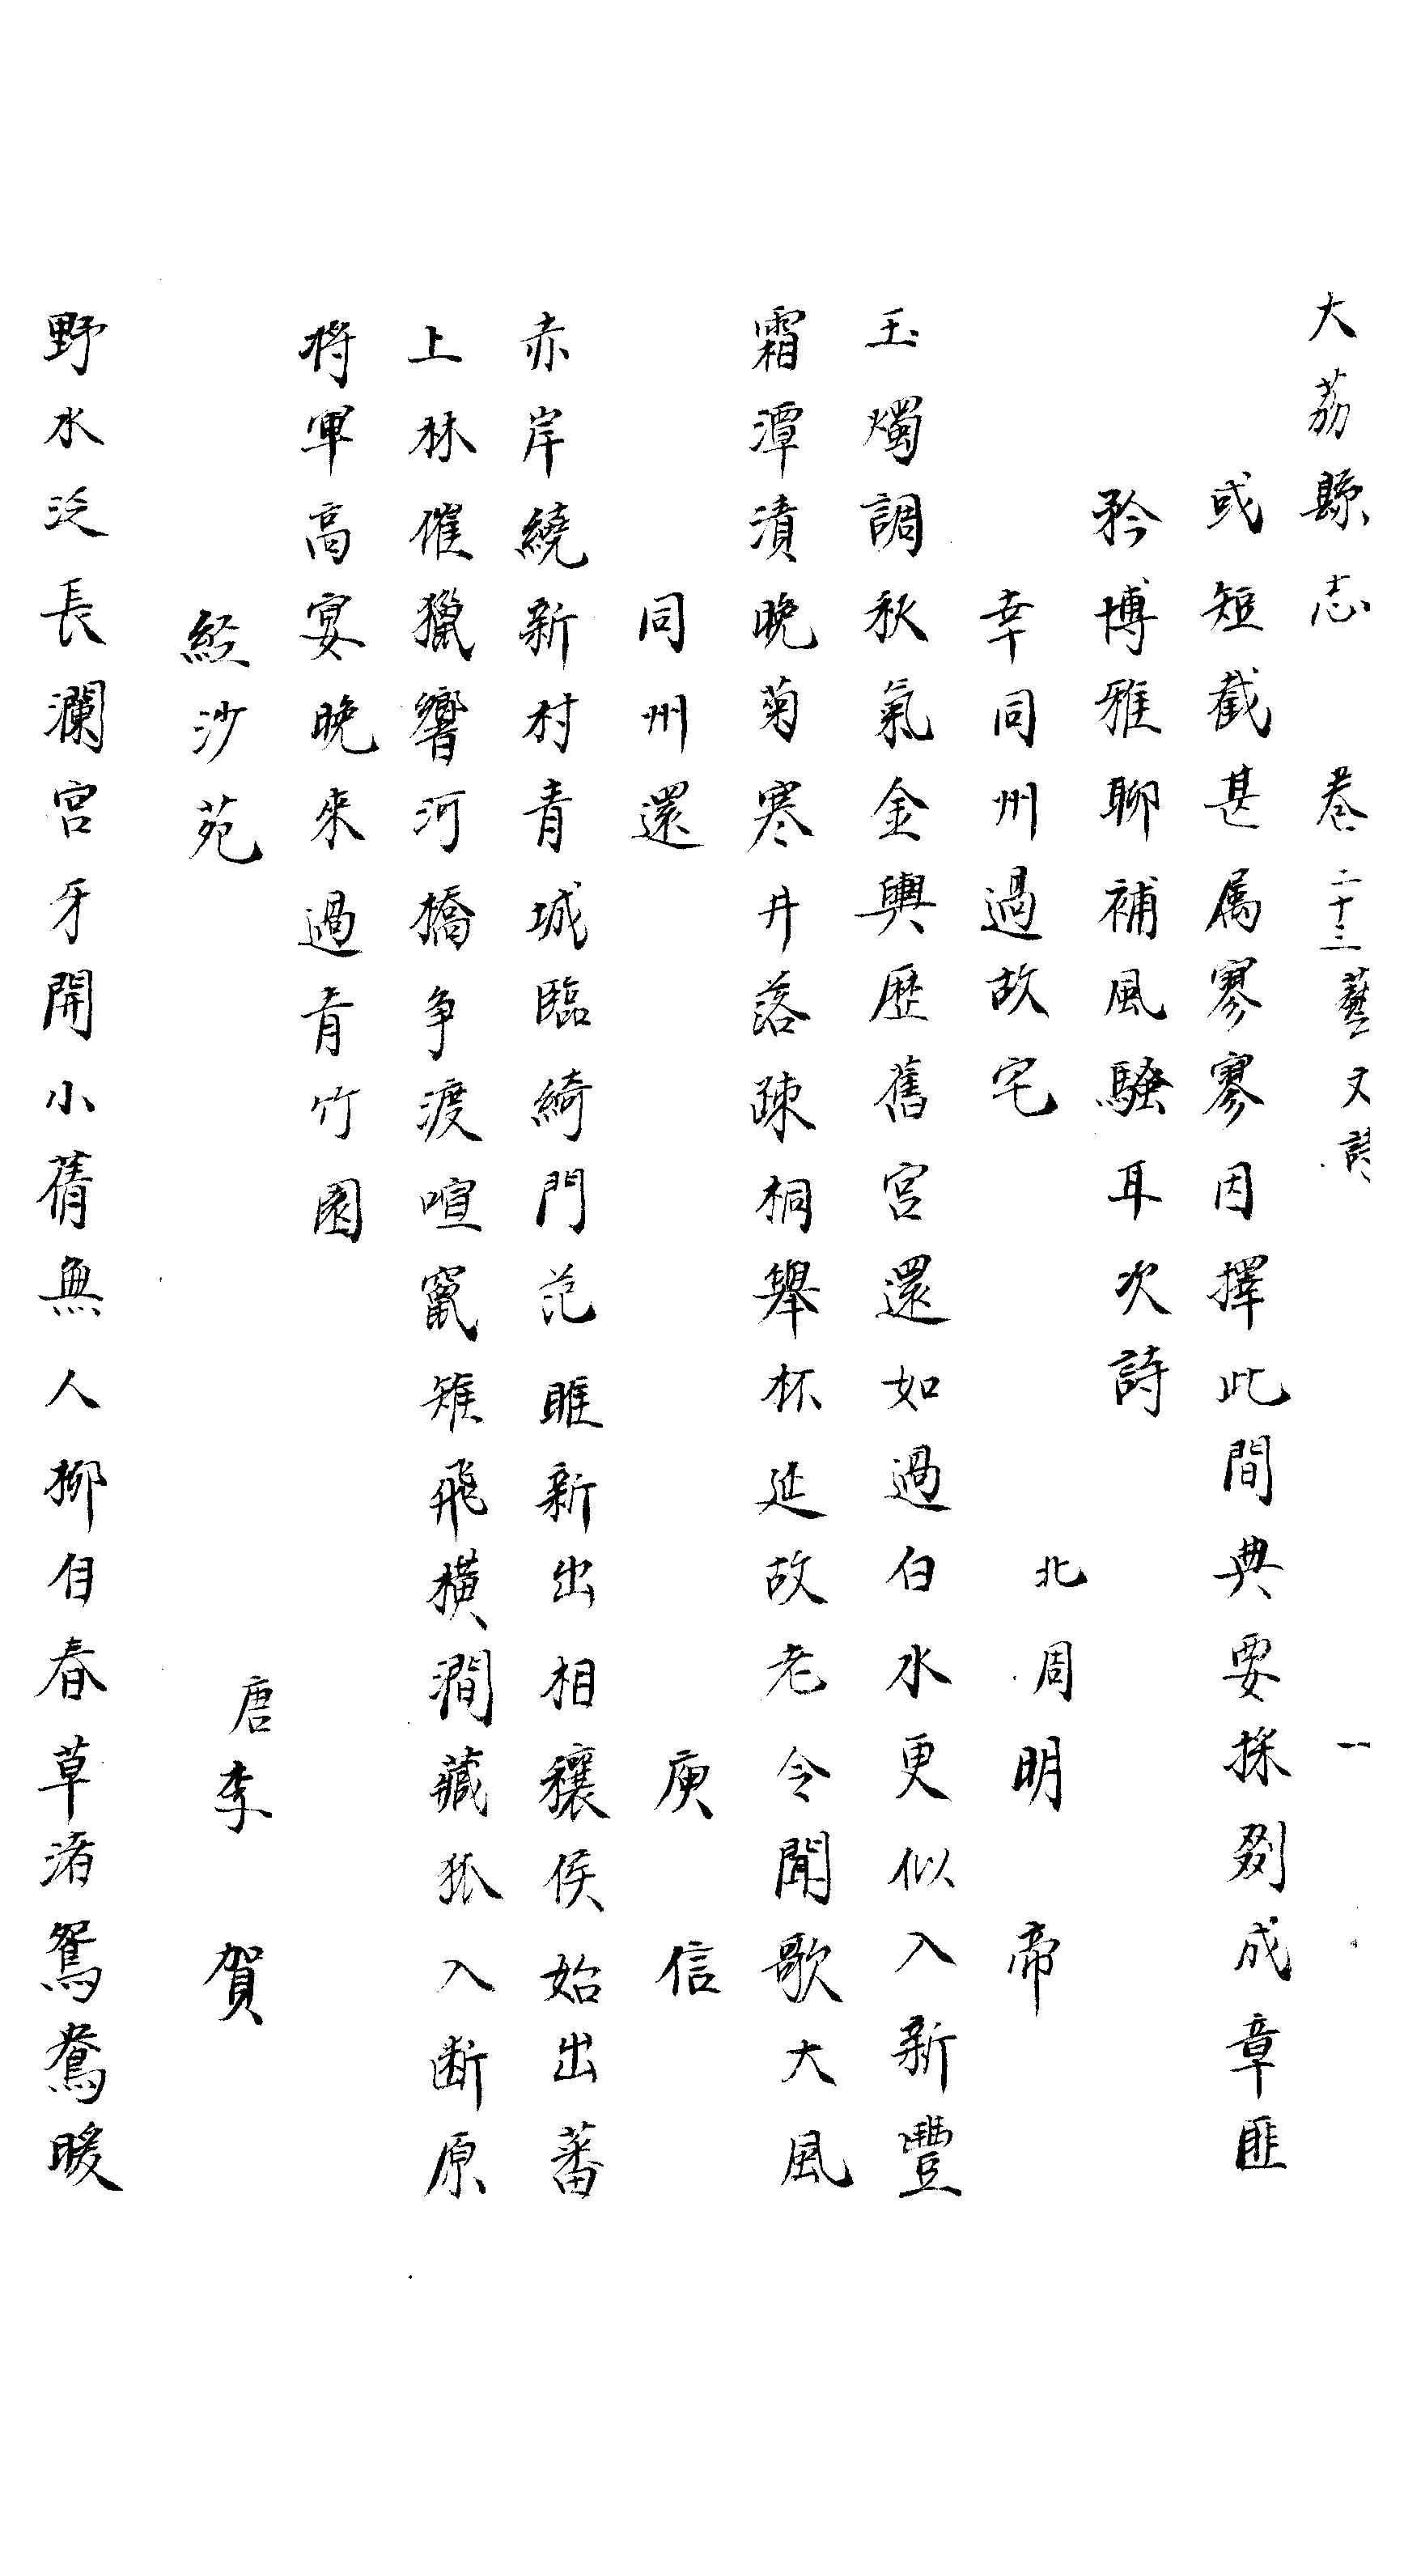 大荔縣志　卷二十三藝文詩　一
或短截甚属寥寥因擇此間典要採剟成章匪
矜博雅聊補風騷耳次詩
幸同州過故宅　北周明帝
玉燭調秋氣金輿歷舊宮還如過白水更似入新豐
霜潭漬晚菊寒井落疎桐舉杯延故老令聞歌大風
同州還　庾信
赤岸繞新村青城臨綺門范雎新出相穰侯始出蕃
上林催獵響河橋争渡喧竄雉飛橫澗藏狐入断原
将軍高宴晚來過青竹園
経沙苑　唐李賀
野水泛長瀾宮牙開小蒨無人柳自春草渚鴛鴦暖